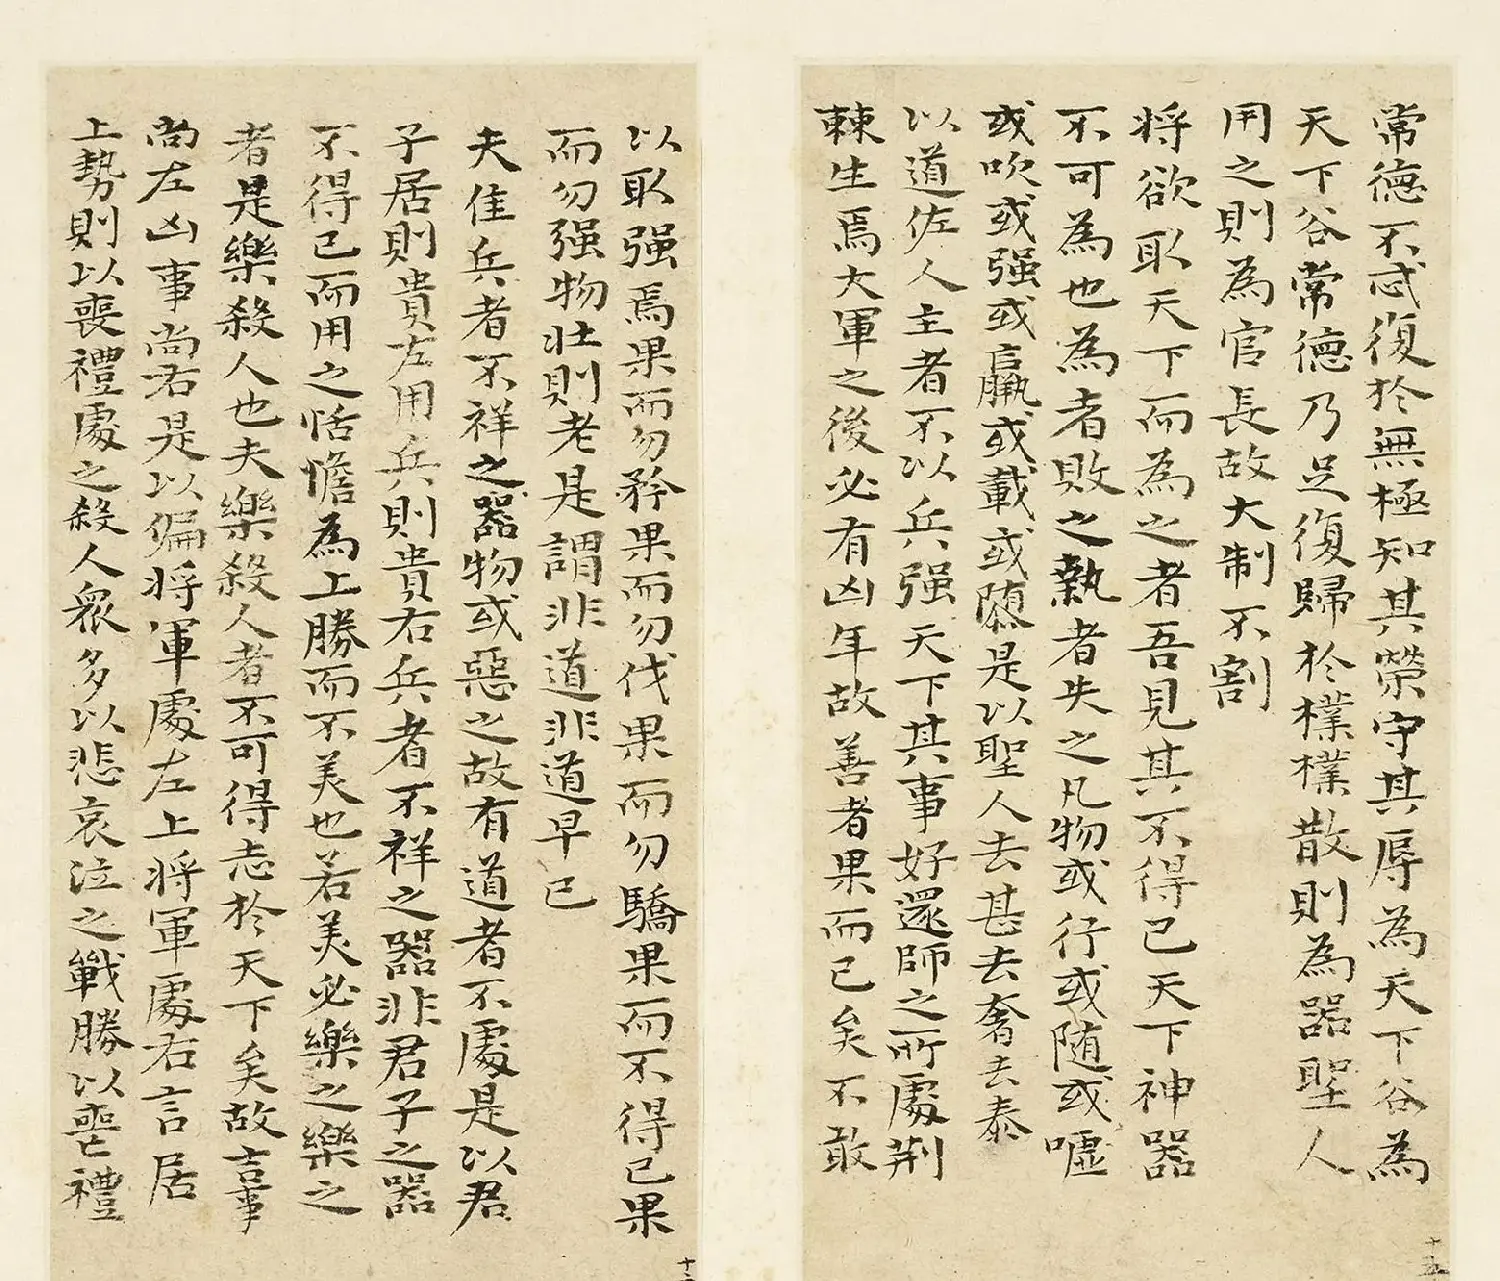 常德不忒復於無極知其榮守其辱為天下谷為
天下谷常德乃足復歸於樸樸散則為器聖人
用之則為官長故大制不割
将欲取天下而為之者吾見其不得已天下神器
不可為也為者敗之執者失之凡物或行或随或嘘
或吹或强或羸或載或隳是以聖人去甚去奢去泰
以道佐人主者不以兵强天下其事好還師之所處荆
棘生焉大軍之後必有凶年故善者果而已矣不敢
十五
以取强焉果而勿矜果而勿伐果而勿驕果而不得已果
而勿强物壯則老是謂非道非道早已
夫佳兵者不祥之器物或惡之故有道者不處是以君
子居則貴左用兵則貴右兵者不祥之器非君子之器
不得已而用之恬憺為上勝而不美也若美必樂之樂之
者是樂殺人也夫樂殺人者不可得志於天下矣故吉事
尚左凶事尚右是以偏将軍處左上将軍處右言居
上勢則以喪禮處之殺人衆多以悲哀泣之戰勝以喪禮